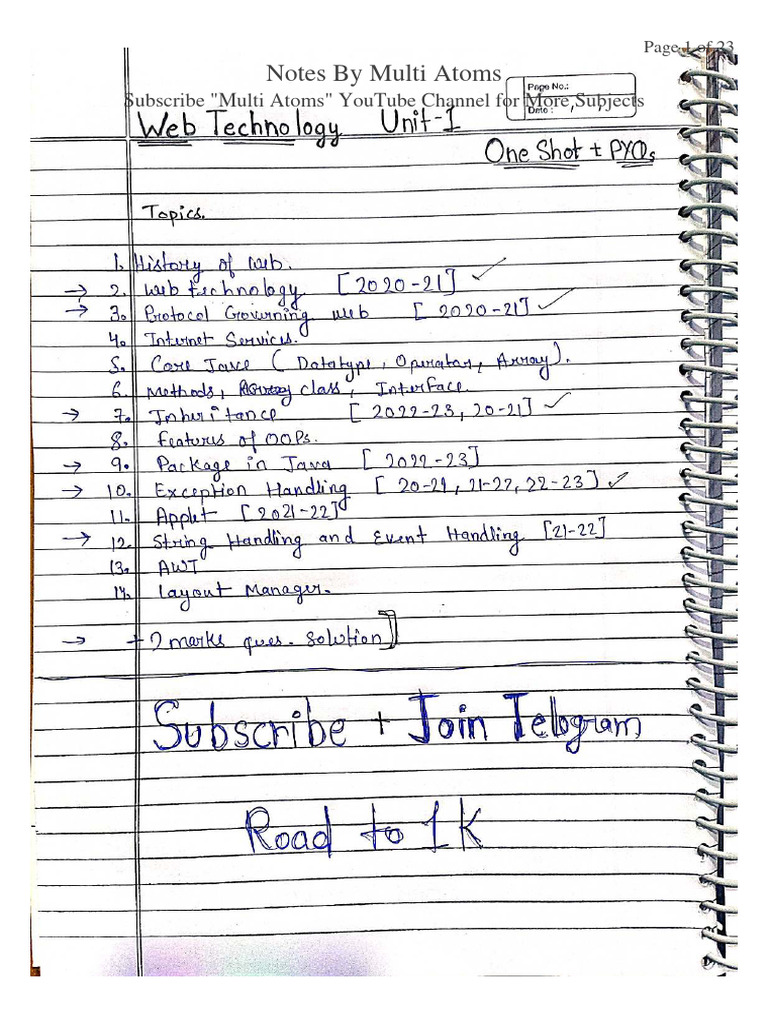 Page 1 of 23
Notes By Multi Atoms
Subscribe "Multi Atoms" YouTube Channel for More Subjects
Page No.:
Date: / /
Web Technology Unit-1
One Shot + PYQs
Topics.
1. History of web.
→ 2. Web technology [2020-21] ✓
→ 3. Protocol Governing web [2020-21] ✓
4. Internet Services.
5. Core Java (Datatype, Operator, Array).
6. Methods, class, Interface.
→ 7. Inheritance [2022-23, 20-21] ✓
8. Features of OOPs.
→ 9. Package in Java [2022-23]
→ 10. Exception Handling [20-21, 21-22, 22-23] ✓
11. Applet [2021-22]
→ 12. String Handling and Event Handling [21-22]
13. AWT
14. Layout Manager.
→ + 2 marks ques. solution]
Subscribe + Join Telegram
Road to 1K